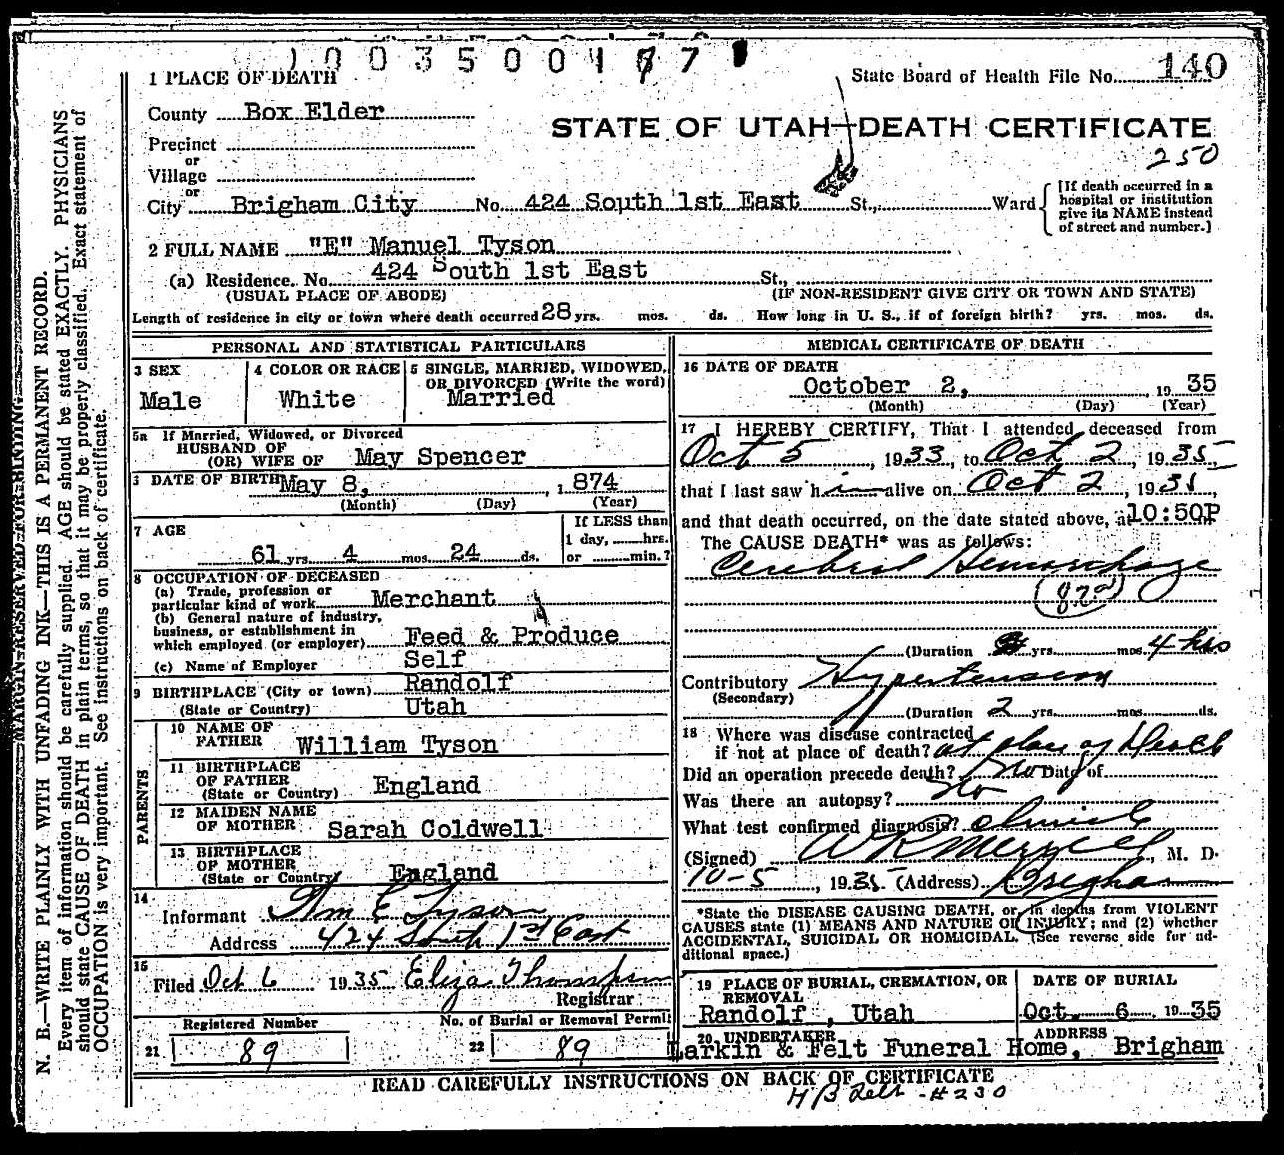 1 0 0 3 5 0 0 1 7 7
1 PLACE OF DEATH
State Board of Health File No. 140
County Box Elder
STATE OF UTAH—DEATH CERTIFICATE
250
Precinct
or
Village
or
City Brigham City No. 424 South 1st East St., Ward
[If death occurred in a hospital or institution give its NAME instead of street and number.]
2 FULL NAME "E" Manuel Tyson
(a) Residence. No. 424 South 1st East St.,
(USUAL PLACE OF ABODE) (IF NON-RESIDENT GIVE CITY OR TOWN AND STATE)
Length of residence in city or town where death occurred 28 yrs. mos. ds. How long in U. S., if of foreign birth? yrs. mos. ds.
PERSONAL AND STATISTICAL PARTICULARS
3 SEX
Male
4 COLOR OR RACE
White
5 SINGLE, MARRIED, WIDOWED, OR DIVORCED (Write the word)
Married
5a If Married, Widowed, or Divorced
HUSBAND OF
(OR) WIFE OF May Spencer
DATE OF BIRTH May 8, 1874
(Month) (Day) (Year)
7 AGE
61 yrs. 4 mos. 24 ds.
If LESS than
1 day, hrs.
or min.?
8 OCCUPATION OF DECEASED
(a) Trade, profession or
particular kind of work Merchant
(b) General nature of industry,
business, or establishment in
which employed (or employer) Feed & Produce
(c) Name of Employer Self
9 BIRTHPLACE (City or town) Randolf
(State or Country) Utah
PARENTS
10 NAME OF
FATHER William Tyson
11 BIRTHPLACE
OF FATHER
(State or Country) England
12 MAIDEN NAME
OF MOTHER Sarah Coldwell
13 BIRTHPLACE
OF MOTHER
(State or Country) England
14
Informant Wm E Tyson
Address 424 South 1st East
15
Filed Oct 6 1935 Eliza Thompson
Registrar
Registered Number
21 89
No. of Burial or Removal Permit
22 89
MEDICAL CERTIFICATE OF DEATH
16 DATE OF DEATH
October 2, 1935
(Month) (Day) (Year)
17 I HEREBY CERTIFY, That I attended deceased from
Oct 5, 1933, to Oct 2, 1935,
that I last saw him alive on Oct 2, 1935,
and that death occurred, on the date stated above, at 10:50P
The CAUSE DEATH* was as follows:
Cerebral Hemorrhage
(Duration yrs. mos. 4 hrs
Contributory Hypertension
(Secondary)
(Duration 2 yrs. mos. ds.
18 Where was disease contracted
if not at place of death? at place of Death
Did an operation precede death? No Date of
Was there an autopsy? No
What test confirmed diagnosis? Clinical
(Signed) M. D.
10-5, 1935 (Address) Brigham
*State the DISEASE CAUSING DEATH, or, in deaths from VIOLENT
CAUSES state (1) MEANS AND NATURE OF INJURY; and (2) whether
ACCIDENTAL, SUICIDAL OR HOMICIDAL. (See reverse side for ad-
ditional space.)
19 PLACE OF BURIAL, CREMATION, OR
REMOVAL
Randolf, Utah
DATE OF BURIAL
Oct. 6 1935
20 UNDERTAKER ADDRESS
Larkin & Felt Funeral Home, Brigham
READ CAREFULLY INSTRUCTIONS ON BACK OF CERTIFICATE
H B Felt - #230
MARGIN RESERVED FOR BINDING
N. B.—WRITE PLAINLY WITH UNFADING INK—THIS IS A PERMANENT RECORD.
Every item of information should be carefully supplied. AGE should be stated EXACTLY. PHYSICIANS
should state CAUSE OF DEATH in plain terms, so that it may be properly classified. Exact statement of
OCCUPATION is very important. See instructions on back of certificate.